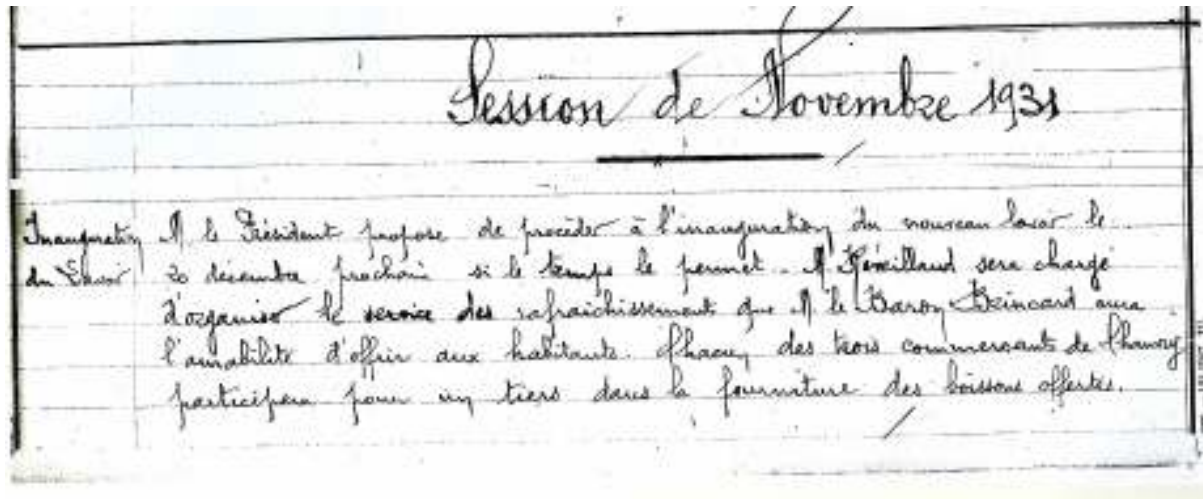 Session de Novembre 1931
Inauguration M le Président propose de procéder à l'inauguration du nouveau lavoir le
du Lavoir 20 décembre prochain si le temps le permet. M Réveillaud sera chargé
d'organiser le service des rafraîchissements que M le Baron Brincard aura
l'amabilité d'offrir aux habitants. Chacun des trois commerçants de
participera pour un tiers dans la fourniture des boissons offertes.